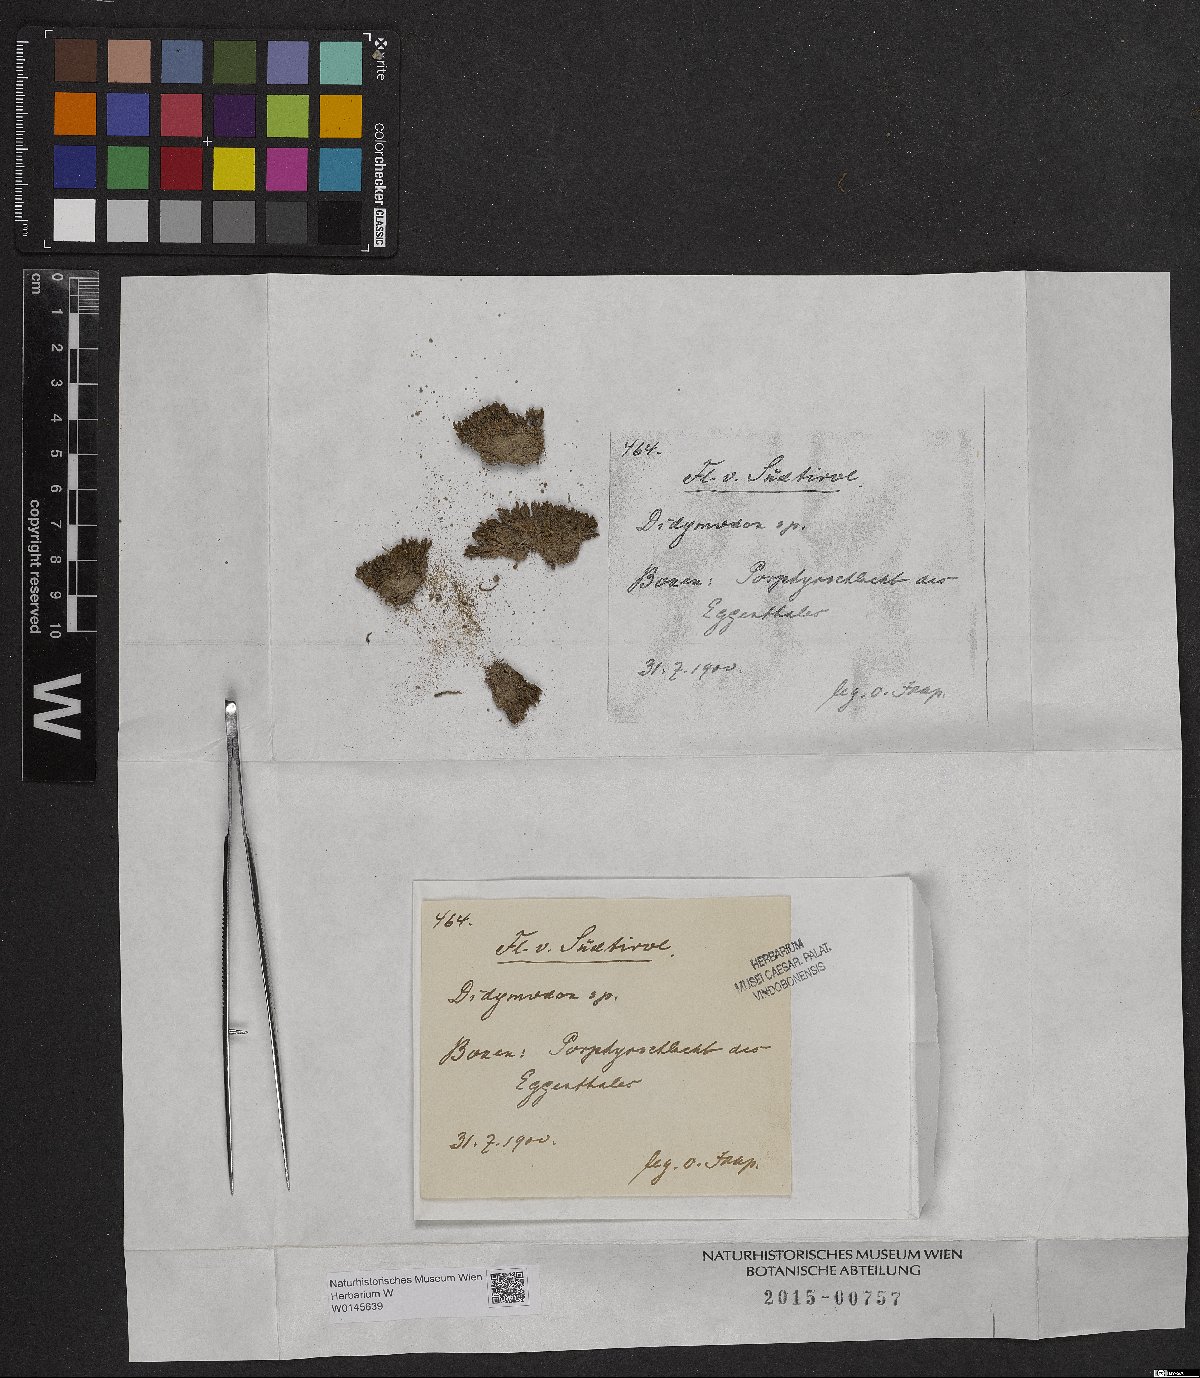 xrite
colorchecker CLASSIC
cm
0 1 2 3 4 5 6 7 8 9 10
copyright reserved
W
464.
Fl. v. Südtirol.
Didymodon sp.
Bozen: Porphyrschlucht des
Eggenthales
31. 7. 1900.
leg. O. Jaap.
464.
Fl. v. Südtirol.
Didymodon sp.
Bozen: Porphyrschlucht des
Eggenthales
31. 7. 1900.
leg. O. Jaap.
HERBARIUM
MUSEI CAESAR. PALAT.
VINDOBONENSIS
NATURHISTORISCHES MUSEUM WIEN
BOTANISCHE ABTEILUNG
2015-00757
Naturhistorisches Museum Wien
Herbarium W
W0145639